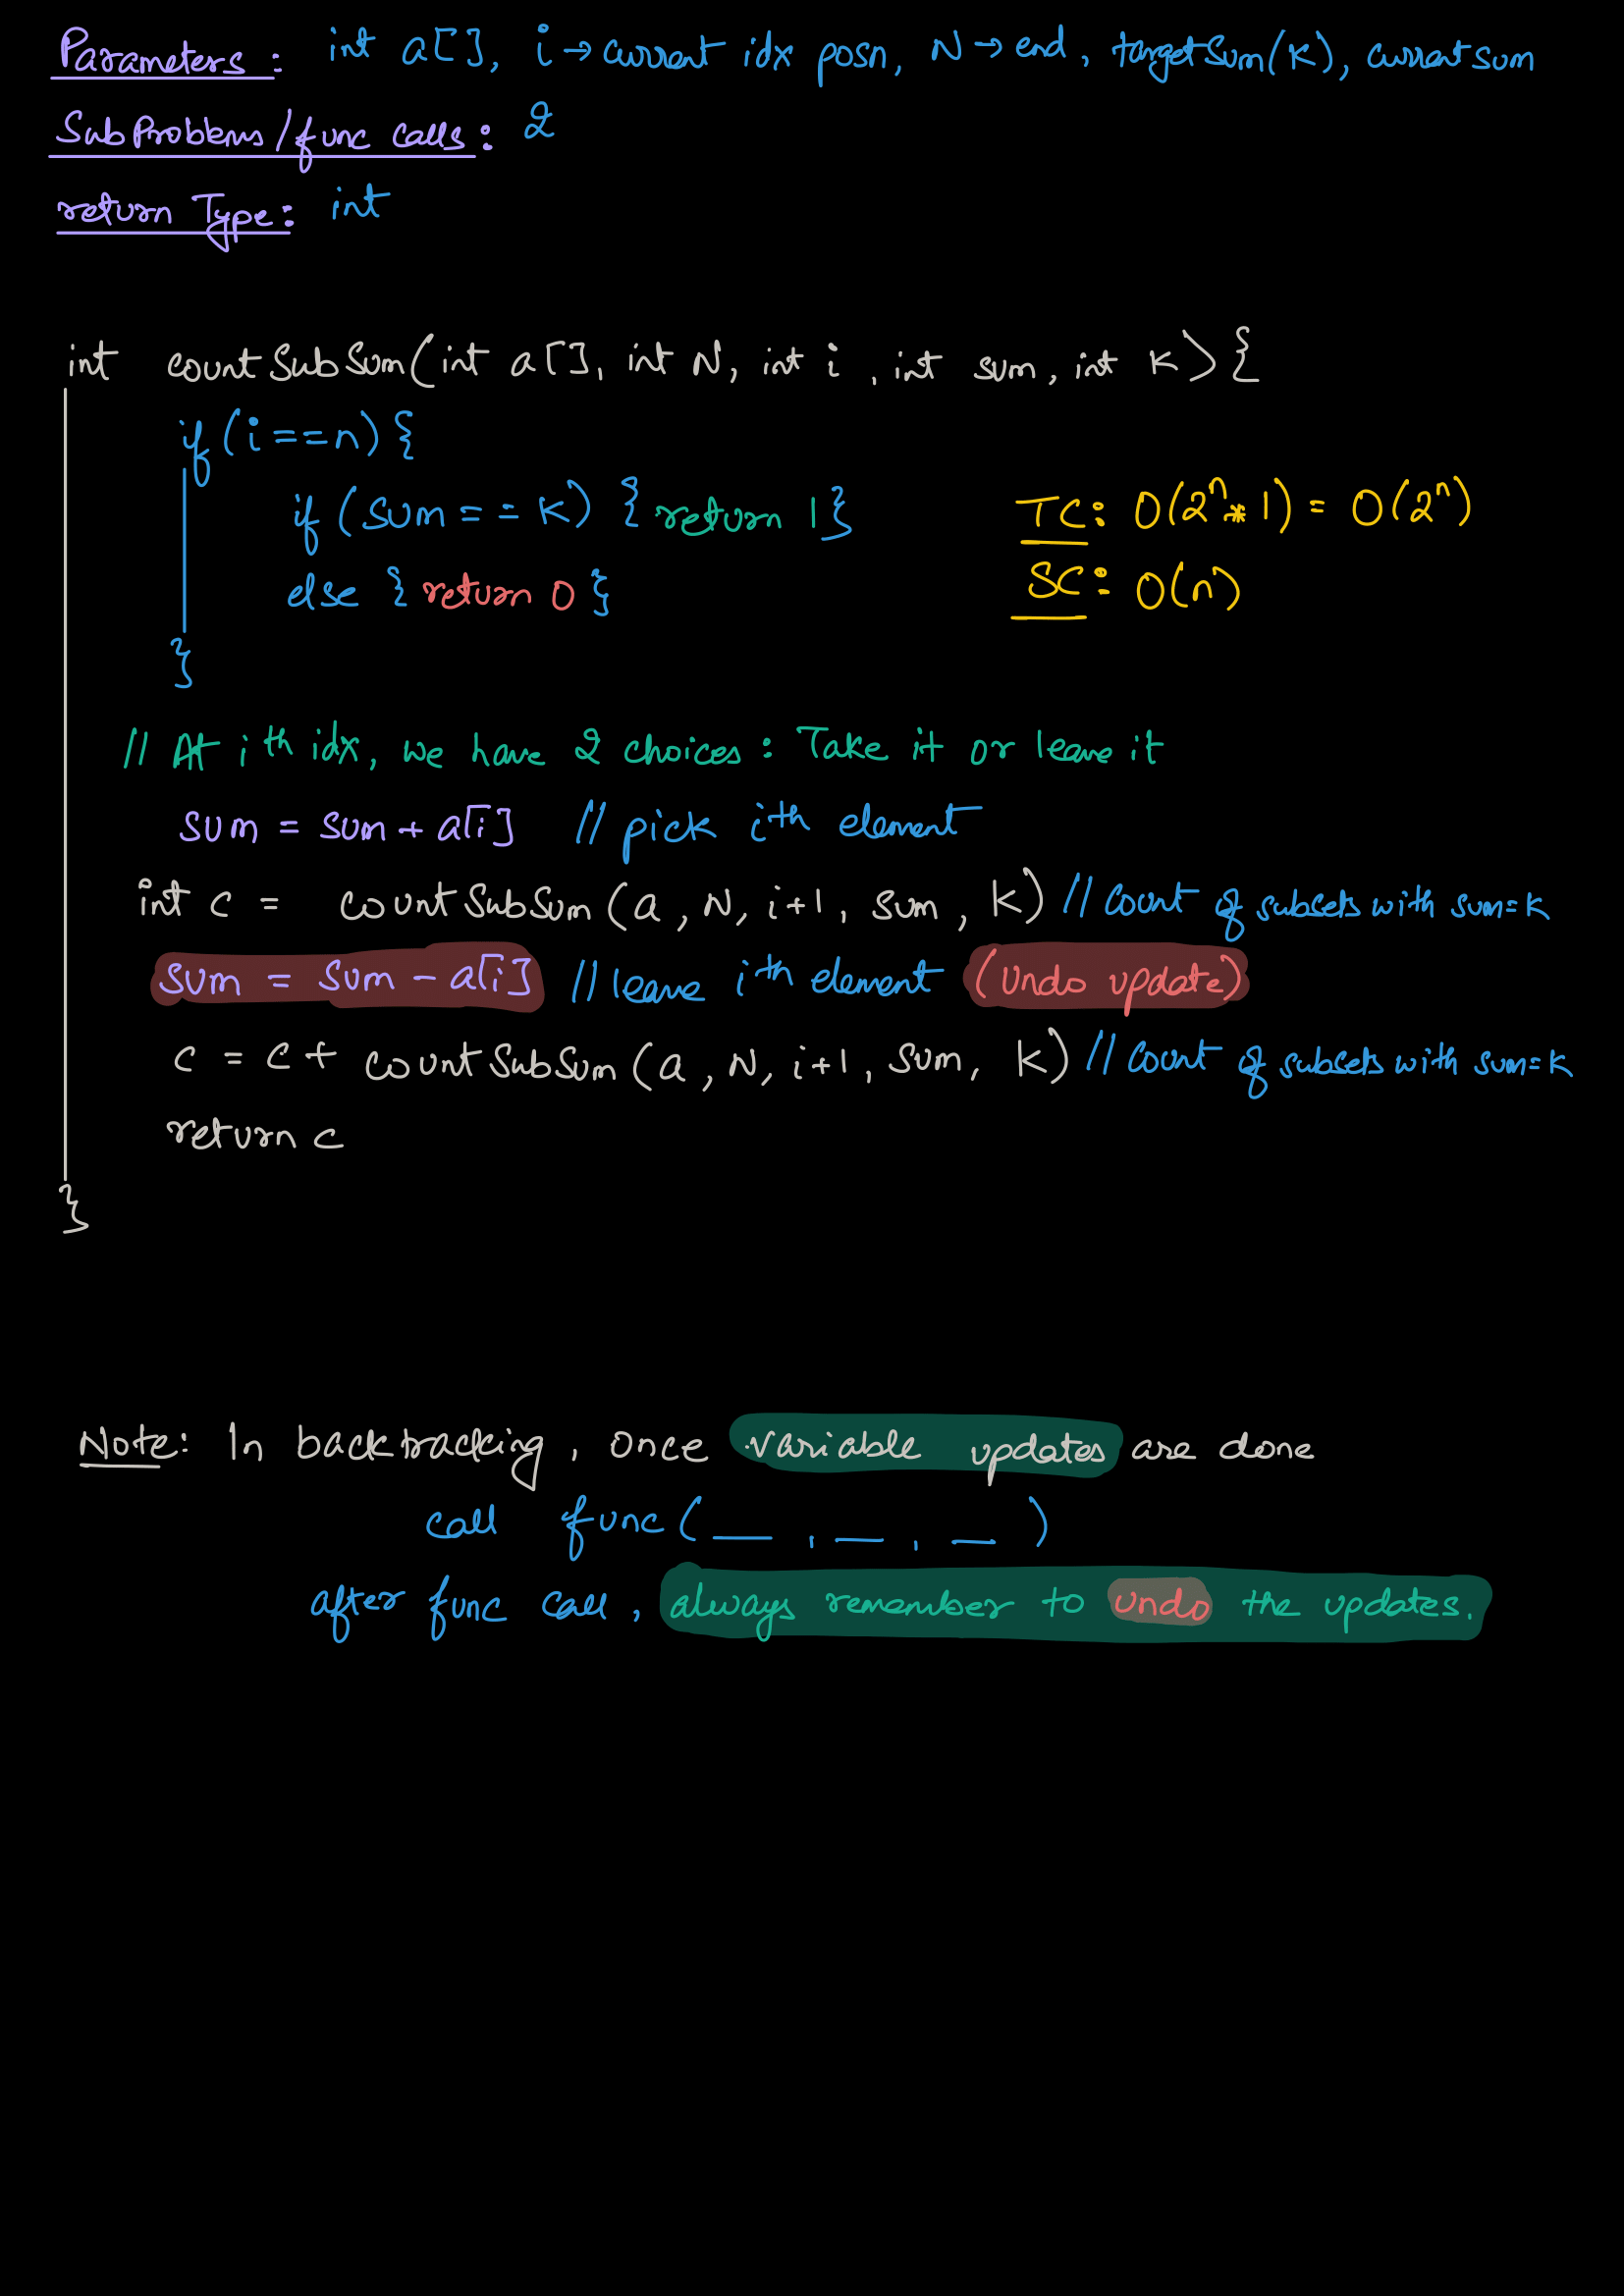 Parameters: int a[], i → current idx posn, N → end, targetSum(K), currentsum
SubProblems/func calls: 2
return Type: int
int countSubSum(int a[], int N, int i, int sum, int K){
if(i==n){
if(sum==K) {return 1}
TC: O(2^n * 1) = O(2^n)
else {return 0}
SC: O(n)
}
// At i th idx, we have 2 choices: Take it or leave it
sum = sum + a[i] // pick ith element
int c = countSubSum(a, N, i+1, sum, K) // Count of subsets with sum=K
sum = sum - a[i] // leave ith element (undo update)
c = c + countSubSum(a, N, i+1, sum, K) // Count of subsets with sum=K
return c
}
Note: In backtracking, once variable updates are done
call func(__, __, __)
after func call, always remember to undo the updates.